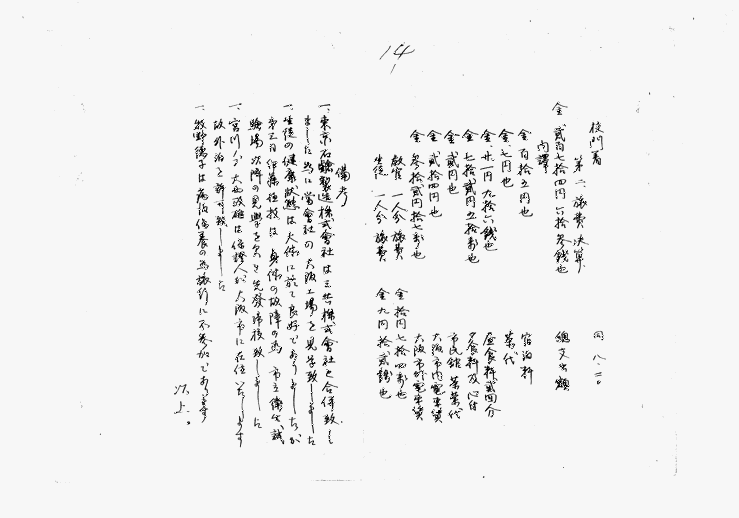 14
校門着 同 八、二〇
第二 旅費決算
金 貮百七拾四円六拾参銭也 總支出額
内譯
金 百拾五円也 宿泊料
金 七円也 茶代
金 廿一円九拾六銭也 昼食料貮回分
金 七拾貮円五拾銭也 夕食料及心付
金 貮円也 市民館 茶菓代
金 貮拾四円也 大阪市内電車賃
金 参拾貮円拾七銭也 大阪市外電車賃
教官 一人分 旅費 金 拾円七拾四銭也
生徒 一人分 旅費 金 九円拾貮錢也
備考
一、東京石鹸製造株式會社は三共株式會社と合併致し
ました為に 當會社の大阪工場を見学致しました
一、生徒の健康状態は大体に於て良好でありましたが
第三日 伊藤 は 身体の故障の為 市立衛生試
驗場以降の見學を欠き先發帰校致しました
一、宮川 大西 は保證人が大阪市に在住いたします
故外泊を許可致しました
一、牧野 子は病後保養の為旅行に不参加であります
以上。